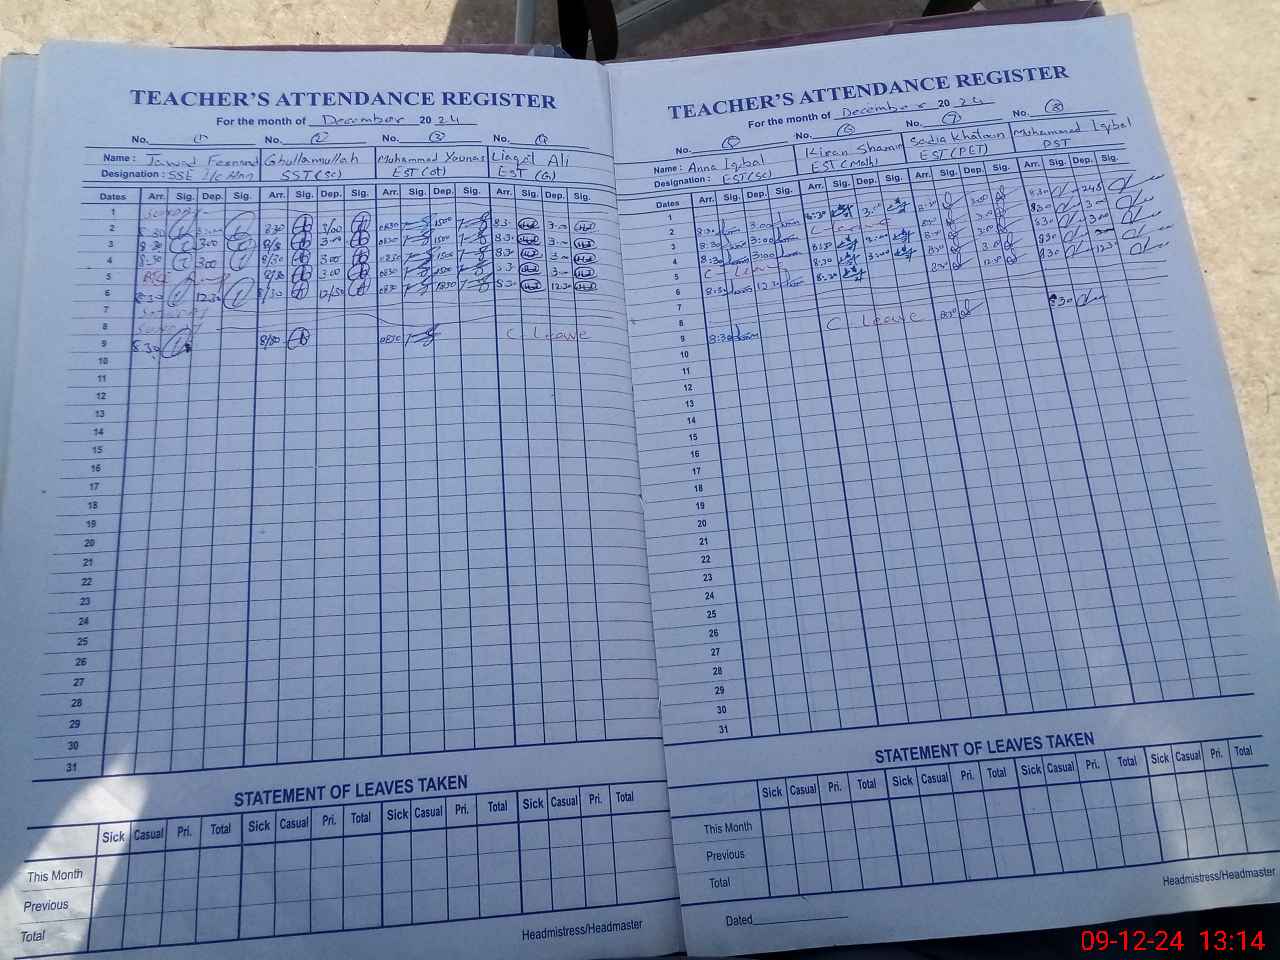 TEACHER'S ATTENDANCE REGISTER
For the month of December 2024
No. 1 No. 2 No. 3 No. 4
Name: Jawad Ghullamullah Muhammad Younas Liaqat Ali
Designation: SSE SST(SC) EST EST
Dates Arr. Sig. Dep. Sig. Arr. Sig. Dep. Sig. Arr. Sig. Dep. Sig. Arr. Sig. Dep. Sig.
1 Sunday
2 8:30 3:00 8:30 3/00 0830 1500 8:30 3:00
3 8:30 3:00 8/30 3:00 0830 1500 8:30 3:00
4 8:30 3:00 8/30 3:00 0830 1500 8:30 3:00
5 8/30 3:00 0830 1500 8:30 3:00
6 8:30 12:30 8/30 12/30 0830 1230 8:30 12:30
7
8 Sunday
9 8:30 8/30 0830 C Leave
10
11
12
13
14
15
16
17
18
19
20
21
22
23
24
25
26
27
28
29
30
31
STATEMENT OF LEAVES TAKEN
Sick Casual Pri. Total Sick Casual Pri. Total Sick Casual Pri. Total Sick Casual Pri. Total
This Month
Previous
Total
Headmistress/Headmaster
TEACHER'S ATTENDANCE REGISTER
For the month of December 2024
No. 5 No. 6 No. 7 No. 8
Name: Anna Iqbal Kiran Shamim Sadia Khatoon Muhammad Iqbal
Designation: EST(SC) EST(Math) EST(PET) PST
Dates Arr. Sig. Dep. Sig. Arr. Sig. Dep. Sig. Arr. Sig. Dep. Sig. Arr. Sig. Dep. Sig.
1
2 8:30 3:00 8:30 3:00 8:30 3:00 8:30 2:45
3 8:30 3:00 C Leave 8:30 3:00 8:30 3:00
4 8:30 3:00 8:30 3:00 8:30 3:00 8:30 3:00
5 C - Leave 8:30 3:00 8:30 3:00 8:30
6 8:30 12:30 8:30 8:30 12:30 8:30 12:30
7
8
9 8:30 C Leave 8:30 8:30
10
11
12
13
14
15
16
17
18
19
20
21
22
23
24
25
26
27
28
29
30
31
STATEMENT OF LEAVES TAKEN
Sick Casual Pri. Total Sick Casual Pri. Total Sick Casual Pri. Total Sick Casual Pri. Total
This Month
Previous
Total
Headmistress/Headmaster
Dated
09-12-24 13:14